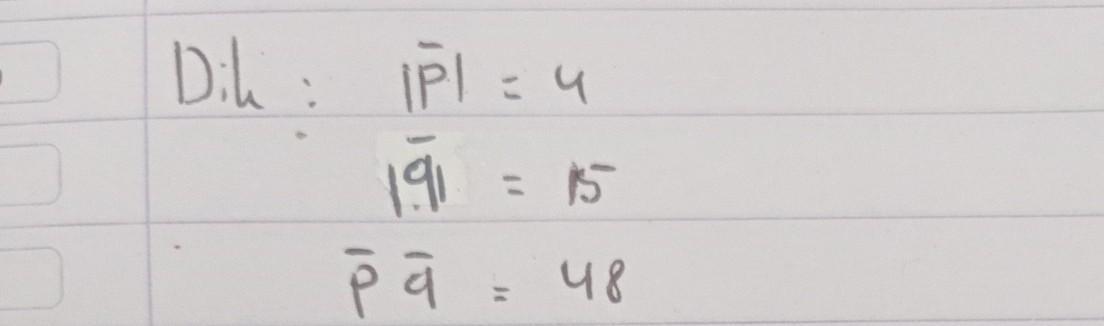 Dik : |p̄| = 4
|q̄| = 15
p̄ q̄ = 48